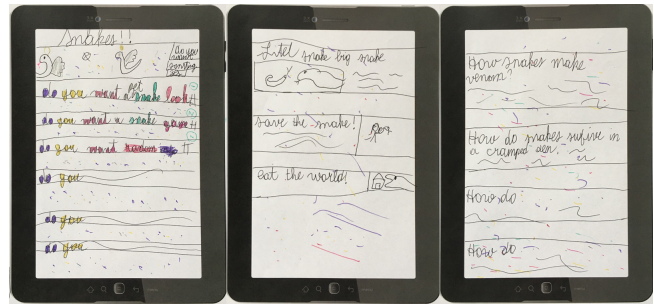 Snakes!!
do you want a pet snake look
do you want a snake game
do you want
do you
do you
do you
Litel snake big snake
save the snake!
eat the world!
How snakes make
venem?
How do snakes sufive in
a cramped den.
How do
How do